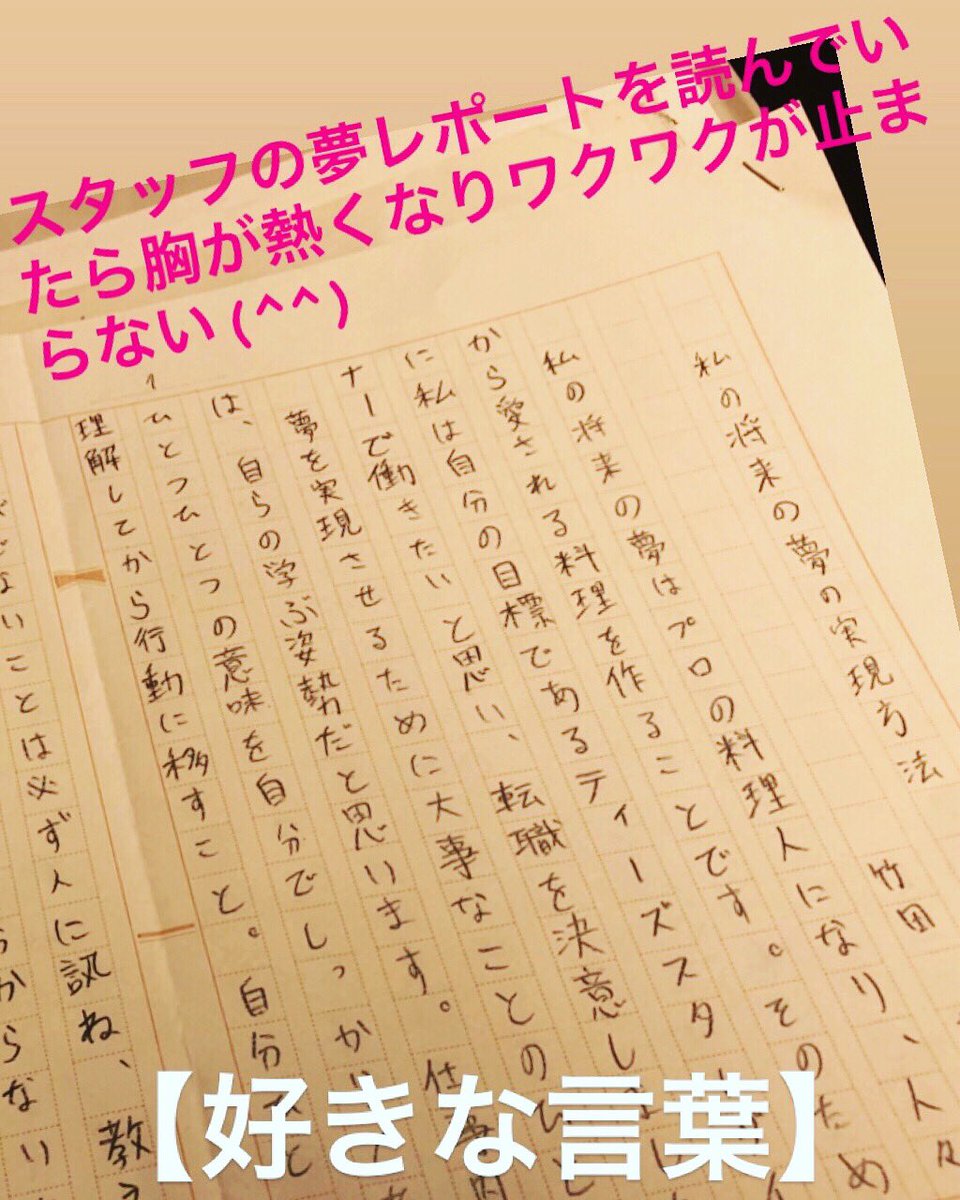 スタッフの夢レポートを読んでい
たら胸が熱くなりワクワクが止ま
らない(^^)
私の将来の夢の実現方法
竹田
私の将来の夢はプロの料理人になり、人々
から愛される料理を作ることです。そのため
に私は自分の目標であるティーズスタ
ナーで働きたいと思い、転職を決意し
夢を実現させるために大事なことのひ
は、自らの学ぶ姿勢だと思います。仕
ひとつひとつの意味を自分でしっか
理解してから行動に移すこと。自分
ないことは必ず人に訊ね、教
からない
【好きな言葉】